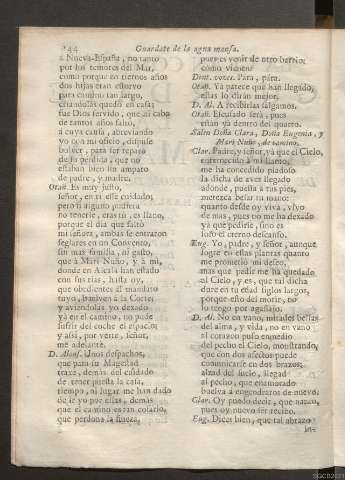 144 Guardate de la agua mansa.
à Nueva-España, no tanto
por los temores del Mar,
como porque en tiernos años
dos hijas eran estorvo
para camino tan largo,
criandolas quedò en casa;
fue Dios servido, que al cabo
de tantos años faltò,
à cuya causa, abreviando
yo con mi oficio, dispuse
bolver, para ser reparo
de su perdida, que no
estaban bien sin amparo
de padre, y madre.
Otañ. Es muy justo,
señor, en ti esse cuidado;
pero si alguno pudiera
no tenerle, eras tù, es llano,
porque el dia que faltò
mi señora, ambas se entraron
seglares en un Convento,
sin mas familia, ni gasto,
que à Mari Nuño, y à mi,
donde en Alcalà han estado
con sus tias, hasta oy,
que obedientes al mandato
tuyo, buelven à la Corte;
y aviendolas yo dexado
yà en el camino, no pude
sufrir del coche el espacio;
y assi, por verte, señor,
me adelantè.
D. Alons. Unos despachos,
que para su Magestad
traxe, demàs del cuidado
de tener puesta la casa,
tiempo, ni lugar me han dado
de ir yo por ellas; demàs
que el camino es tan cosario,
que perdona la fineza,
pues es venir de otro barrio:
como vienen?
Dent. voces. Pàra, pàra.
Otañ. Yà parece que han llegado,
ellas lo diràn mejor.
D. Al. A recibirlas salgamos.
Otañ. Escusado serà, pues
estàn yà dentro del quarto.
Salen Doña Clara, Doña Eugenia, y
Mari Nuño, de camino.
Clar. Padre, y señor, yà que el Cielo,
enternecido à mi llanto,
me ha concedido piadoso
la dicha de aver llegado
adonde, puesta à tus pies,
merezca besar tu mano:
quanto desde oy viva, vivo
de mas, pues no me ha dexado
yà que pedirle, sino es
solo el eterno descanso.
Eug. Yo, padre, y señor, aunque
logre en essas plantas quanto
me prometiò mi deseo,
mas que pedir me ha quedado
al Cielo, y es, que tal dicha
dure en tu edad siglos largos,
porque esto del morir, no
lo tengo por agasajo.
D. Al. No en vano, mitades bellas
del alma, y vida, no en vano
al corazon puso enmedio
del pecho el Cielo, mostrando,
que con dos afectos puede
comunicarse en dos brazos;
alzad del suelo, llegad
al pecho, que enamorado
buelva à engendraros de nuevo.
Clar. Oy puedo decir, que nazco,
pues oy nuevo sèr recibo.
Eug. Dices bien, que tal abrazo